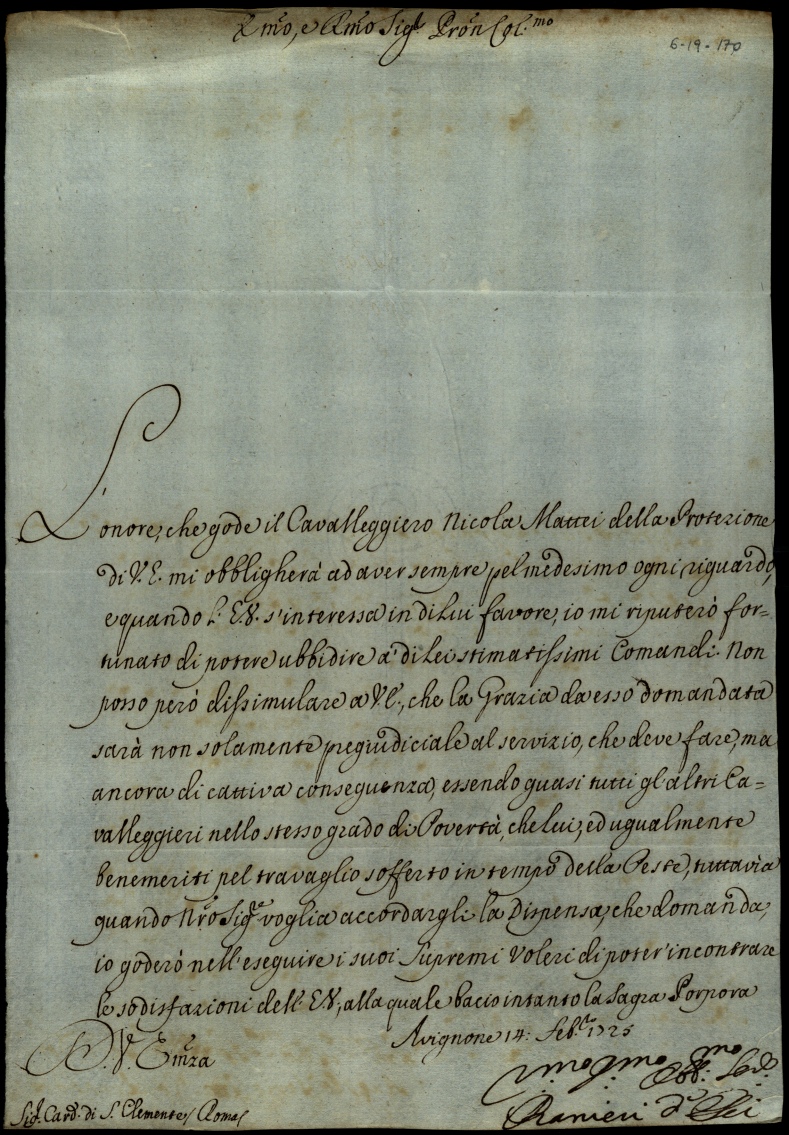 Emo, e Rmo Sigr. Pron Col.mo
6-19-170
L'onore, che gode il Cavalleggiero Nicola Mattei della Protezione
di V. E. mi obbligherà ad aver sempre pel medesimo ogni riguardo,
e quando l'E. V. s'interessa in di lui favore, io mi riputerò for=
tunato di potere ubbidire a' di lei stimatissimi Comandi. Non
posso però dissimulare a V. E., che la Grazia da esso domandata
sarà non solamente pregiudiciale al servizio, che deve fare, ma
ancora di cattiva conseguenza, essendo quasi tutti gl'altri Ca=
valleggieri nello stesso grado di Povertà, che lui, ed ugualmente
benemeriti pel travaglio sofferto in tempo della Peste, tuttavia
quando Nro Sigre voglia accordargli la Dispensa, che domanda,
io goderò nell'eseguire i suoi Supremi Voleri di poter'incontrare
le sodisfazioni dell'E. V., alla quale bacio intanto la Sagra Porpora
Avignone 14: Feb.ro 1725
D. V. Emza
Vmo Dmo Obb.mo Ser.
Sigr. Card. di S. Clemente / Roma /
Ranieri d'Elci